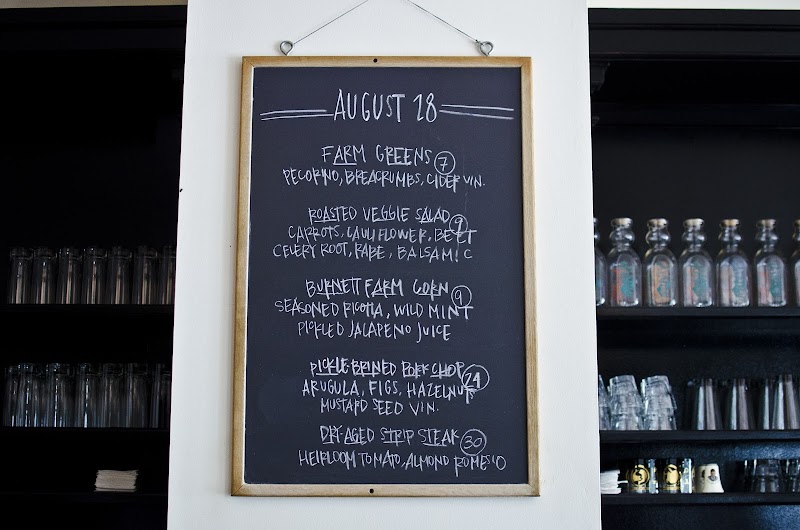 AUGUST 28
FARM GREENS 7
PECORINO, BREADCRUMBS, CIDER VIN.
ROASTED VEGGIE SALAD 9
CARROTS, CAULIFLOWER, BEET
CELERY ROOT, RABE, BALSAMIC
BURNETT FARM CORN 9
SEASONED RICOTTA, WILD MINT
PICKLED JALAPENO JUICE
PICKLE BRINED PORK CHOP 24
ARUGULA, FIGS, HAZELNUT
MUSTARD SEED VIN.
DRY-AGED STRIP STEAK 30
HEIRLOOM TOMATO, ALMOND ROMESCO